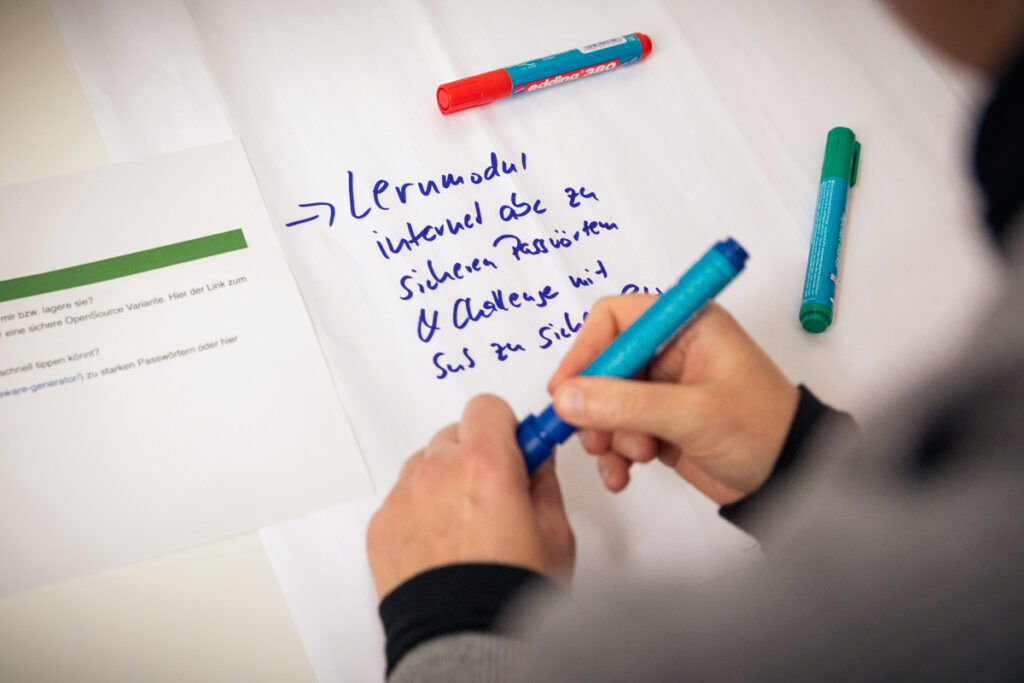 edding 380
→ Lernmodul
internet abc zu
sicheren Passwörtern
& Challenge mit
SuS zu
mir bzw. lagere sie?
eine sichere OpenSource Variante. Hier der Link zum
schnell tippen könnt?
eware-generator/) zu starken Passwörtern oder hier